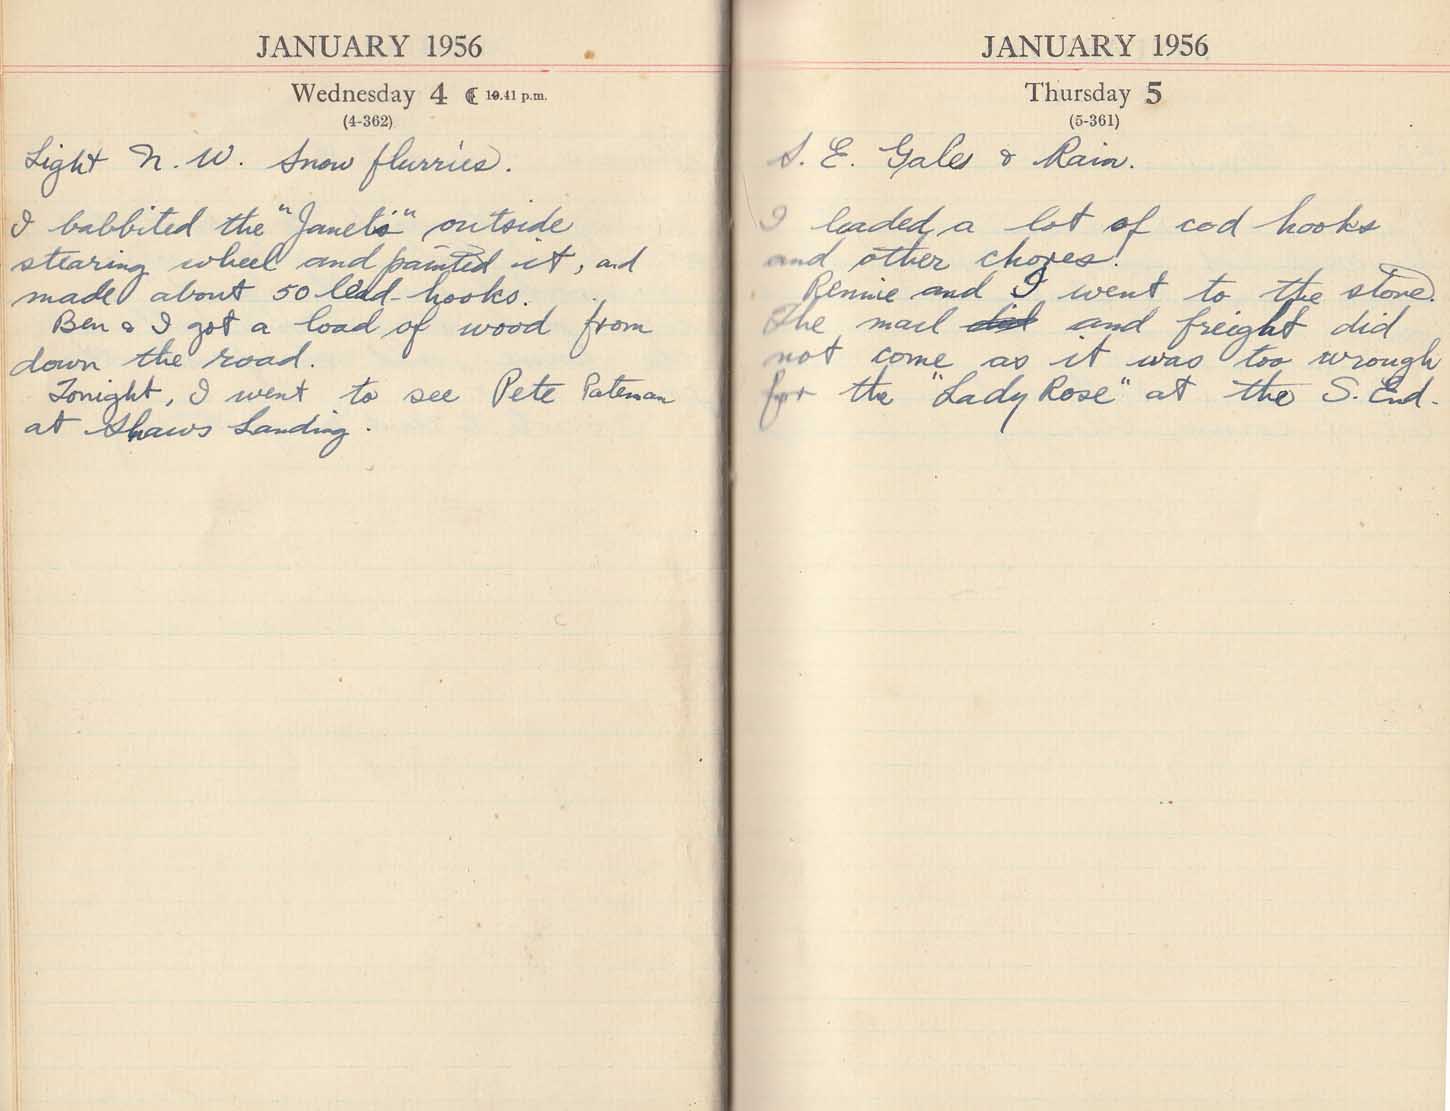 JANUARY 1956
Wednesday 4 ☾ 10.41 p.m.
(4-362)
Light N. W. Snow flurries.
I babbited the "Janet's" outside
stearing wheel and painted it, and
made about 50 lead-hooks.
Ben & I got a load of wood from
down the road.
Tonight, I went to see Pete Pateman
at Shaws Landing.
JANUARY 1956
Thursday 5
(5-361)
S. E. Gales & Rain.
I leaded a lot of cod hooks
and other chores.
Rennie and I went to the store.
The mail did and freight did
not come as it was too wrough
for the "Lady Rose" at the S. End.